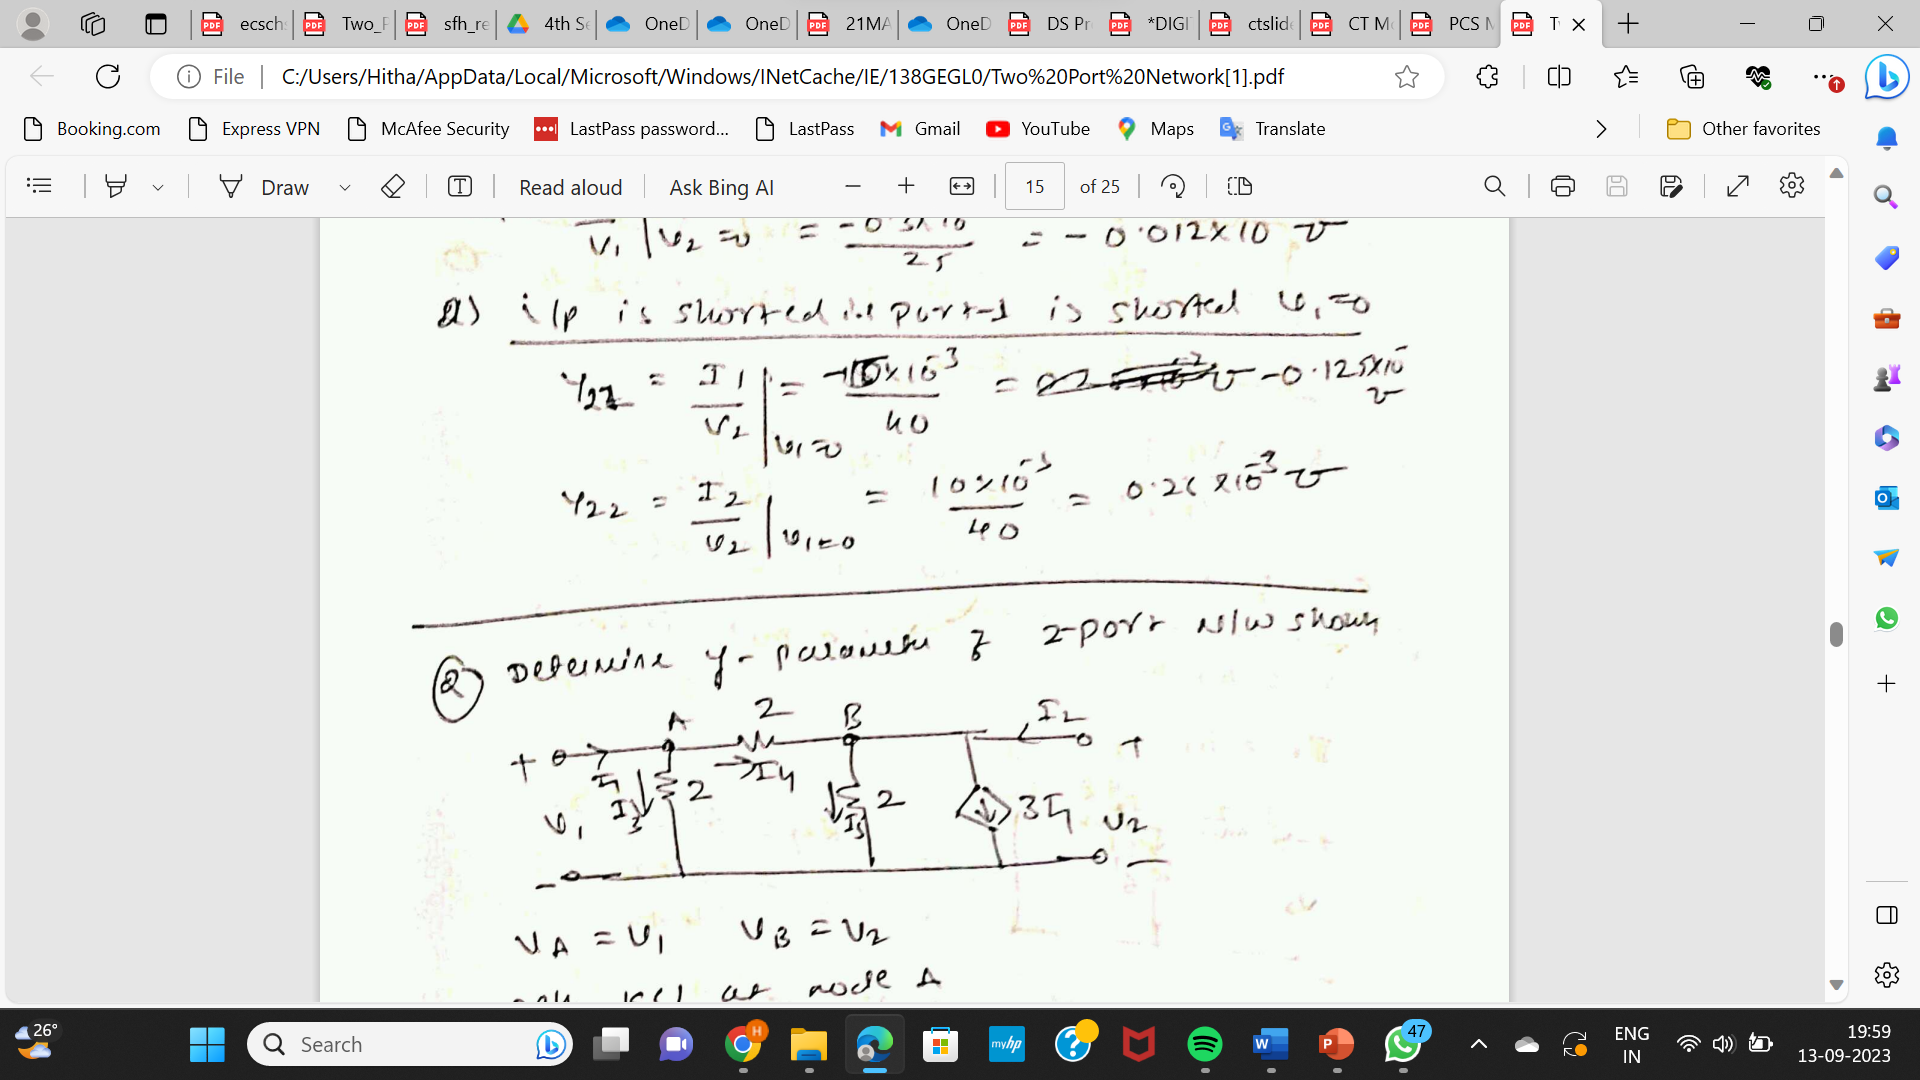 ecsch
Two_P
sfh_re
4th Se
OneD
OneD
21MA
OneD
DS Pr
*DIGI
ctslide
CT Mo
PCS M
Tv
File
C:/Users/Hitha/AppData/Local/Microsoft/Windows/INetCache/IE/138GEGL0/Two%20Port%20Network[1].pdf
Booking.com
Express VPN
McAfee Security
LastPass password...
LastPass
Gmail
YouTube
Maps
Translate
Other favorites
Draw
Read aloud
Ask Bing AI
15 of 25
V1 | V2 = 0 = 25 = - 0.012x10 ℧
i/p is shorted port-1 is shorted V1=0
I1 / V2 | V1=0 = x10^-3 / 40 = -0.125x10^- ℧
Y22 = I2 / V2 | V1=0 = 10x10^-3 / 40 = x10^-3 ℧
Q Determine y-parameter of 2-port N/W shown
A 2 B I2
+ I1 I3 2 I4 2 I5 3I1 +
V1 V2
-
-
VA = V1 VB = V2
KCL at node A
26°
Search
H
myhp
47
ENG
IN
19:59
13-09-2023